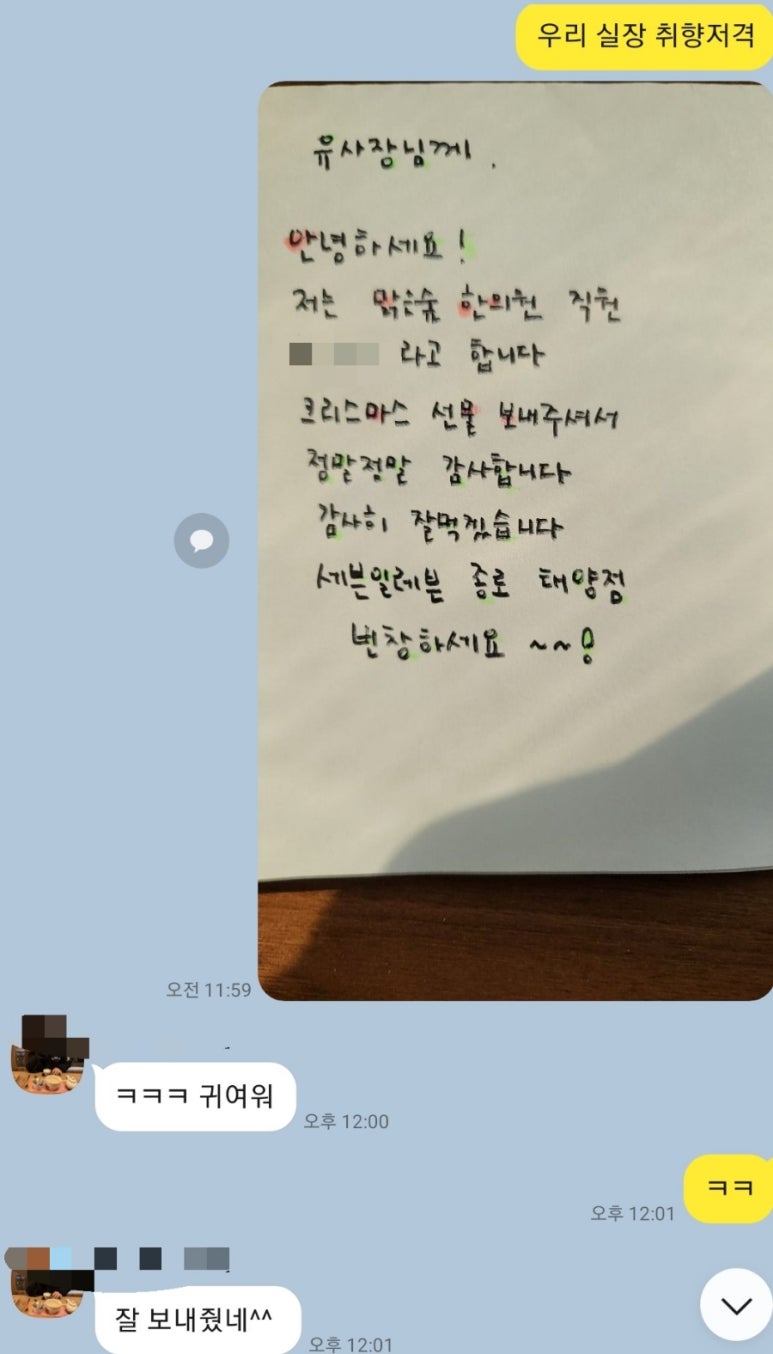 우리 실장 취향저격
유사장님께.
안녕하세요!
저는 맑은숲 한의원 직원
라고 합니다
크리스마스 선물 보내주셔서
정말정말 감사합니다
감사히 잘먹겠습니다
세븐일레븐 종로 태양점
번창하세요 ~~!
오전 11:59
ㅋㅋㅋ 귀여워
오후 12:00
ㅋㅋ
오후 12:01
잘 보내줬네^^
오후 12:01